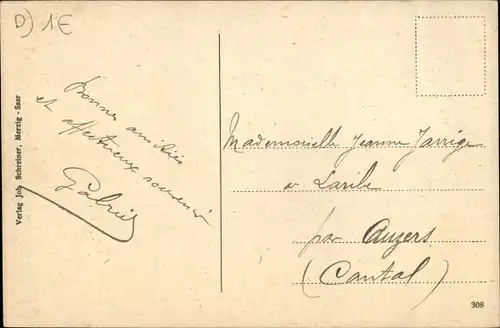 D) 1€
Bonnes amitiés
et affectueux souvenir
Gabriel
Mademoiselle Jeanne Jarrige
a Laribe
par Auzers
(Cantal)
Verlag Joh. Schreiner, Merzig - Saar
308